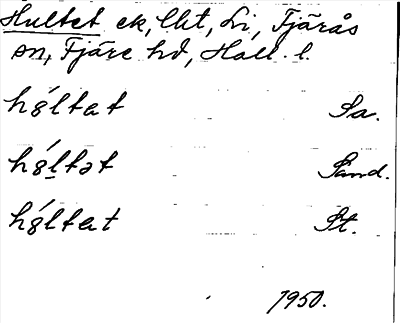 Hultet ek, lht, Li, Fjärås
sn, Fjäre hd, Hall. l.
hɣ́ltat Sa.
hɣ́ltət Sand.
hɣ́ltat St.
1950.